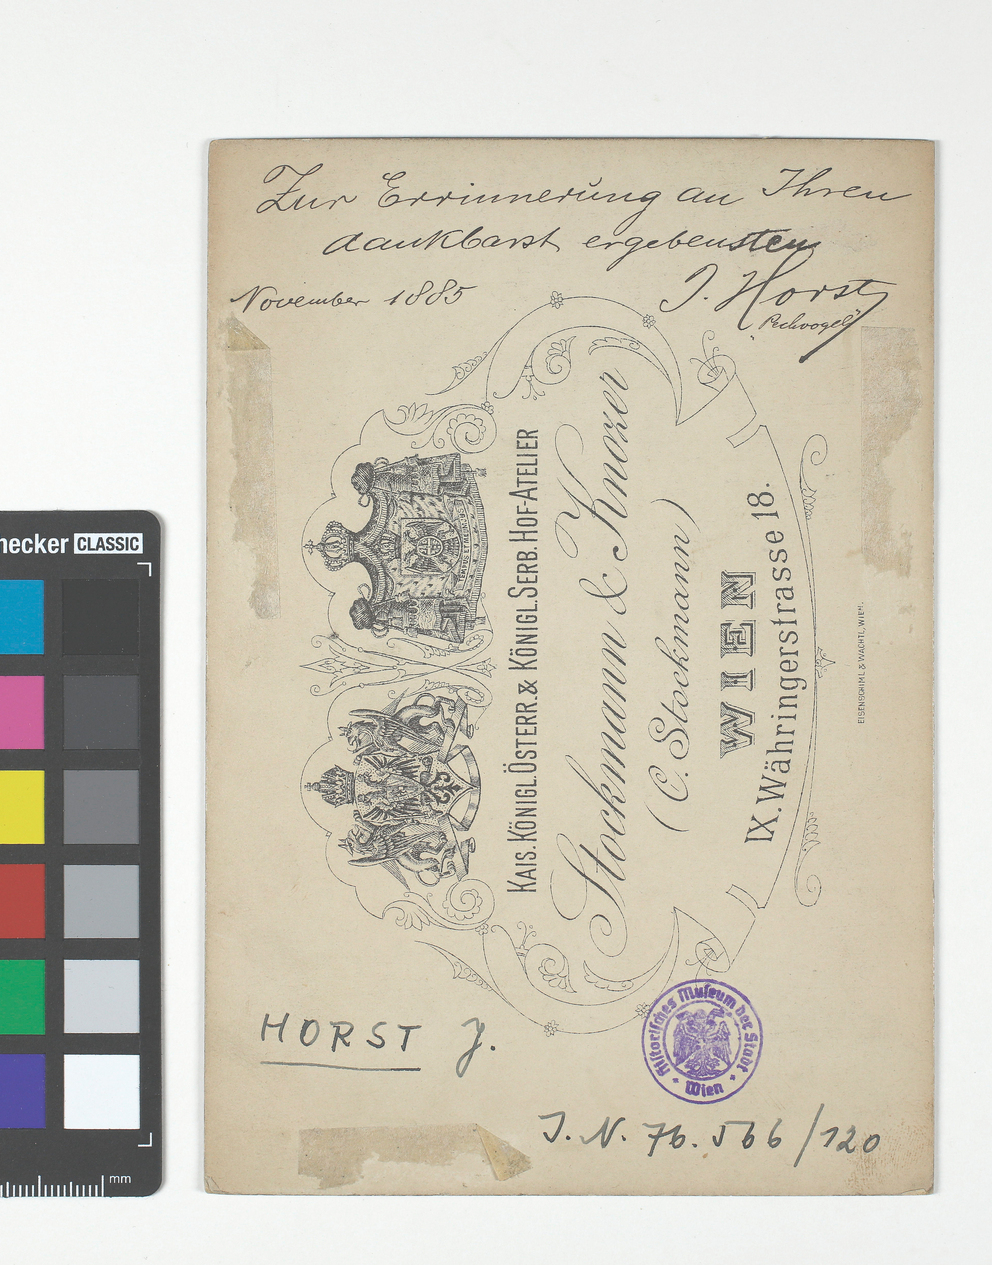 Zur Errinnerung an Ihren
dankbarst ergebensten
November 1885
J. Horst
"Pechvogel"
KAIS. KÖNIGL. ÖSTERR. & KÖNIGL. SERB. HOF-ATELIER
Stockmann & Knozer
(C. Stockmann)
WIEN
IX. Währingerstrasse 18.
EISENSCHIML & WACHTL, WIEN.
HORST J.
Historisches Museum der Stadt
Wien
J. N. 76.566/120
hecker CLASSIC
mm